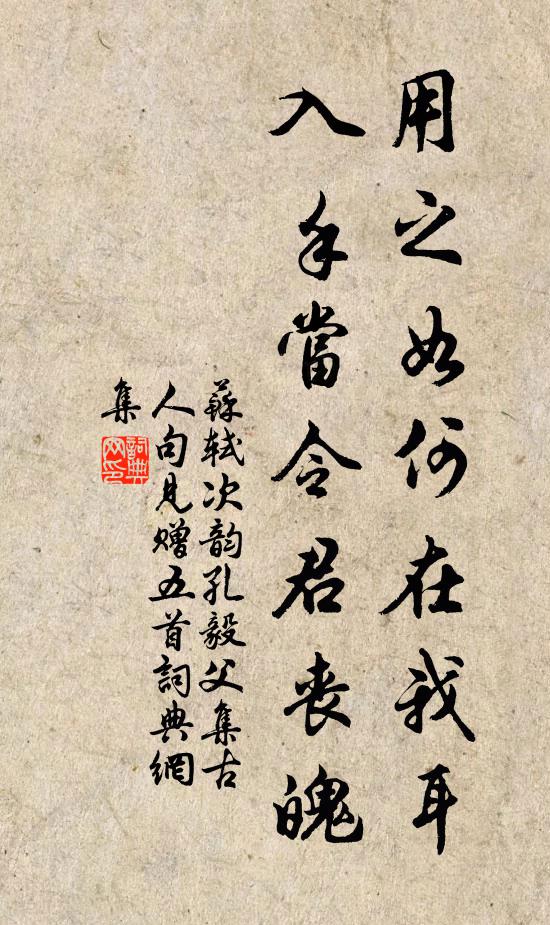 用之如何在我耳
入手當令君喪魄
蘇軾次韵孔毅父集古
人句見贈五首詞典網
集
詞典
网印